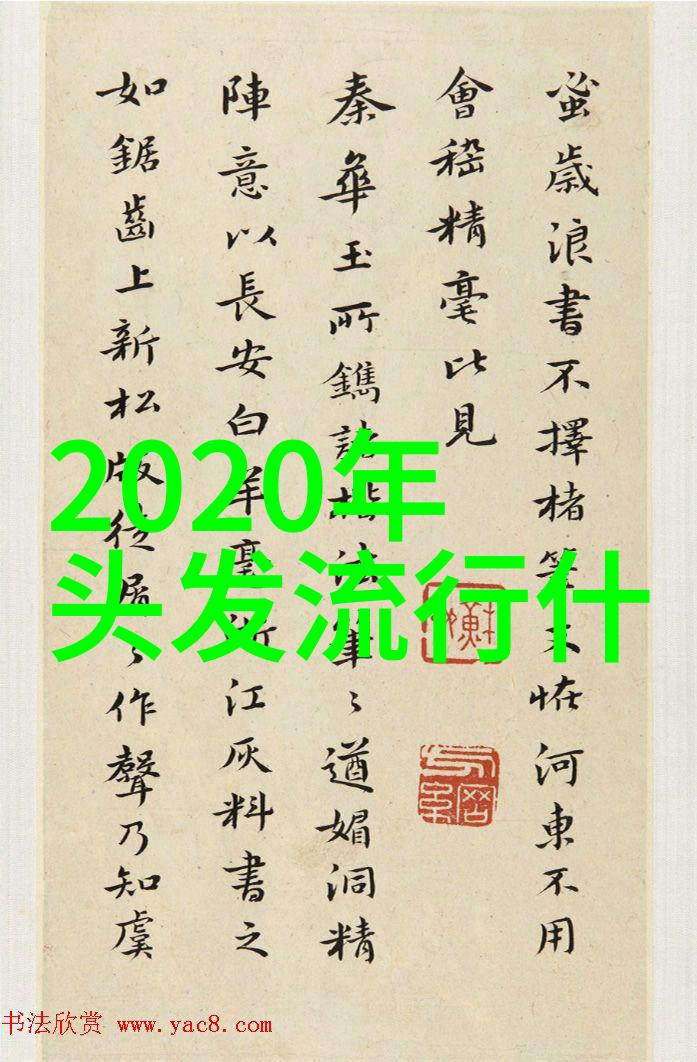 蚤歲浪書不擇楮筆又恠河東不用
會稽精毫此見
秦華玉所鐫諸楷法筆〻遒媚洞精
陣意以長安白羊毫浙江灰料書之
如鋸齒上新松版從屑〻作聲乃知虞
2020年
头发流行什
书法欣赏 www.yac8.com